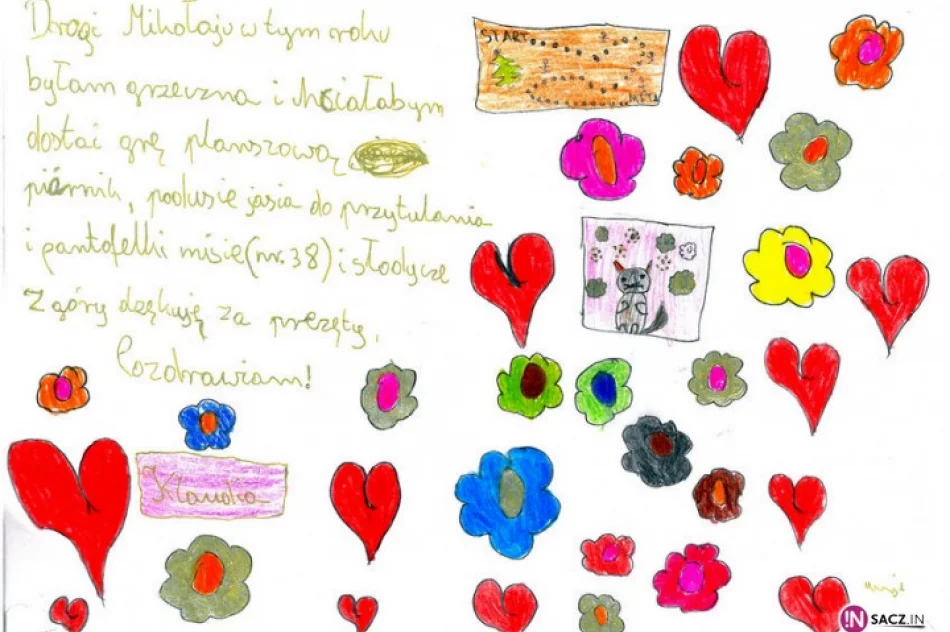 Drogi Mikołaju w tym roku
byłam grzeczna i chciałabym
dostać grę planszową
piórnik, podusię jasia do przytulania
i pantofelki misie (nr. 38) i słodycze
Z góry dzękuję za prezęty,
Pozdrawiam!
Klaudia
START
META
IN SACZ.IN